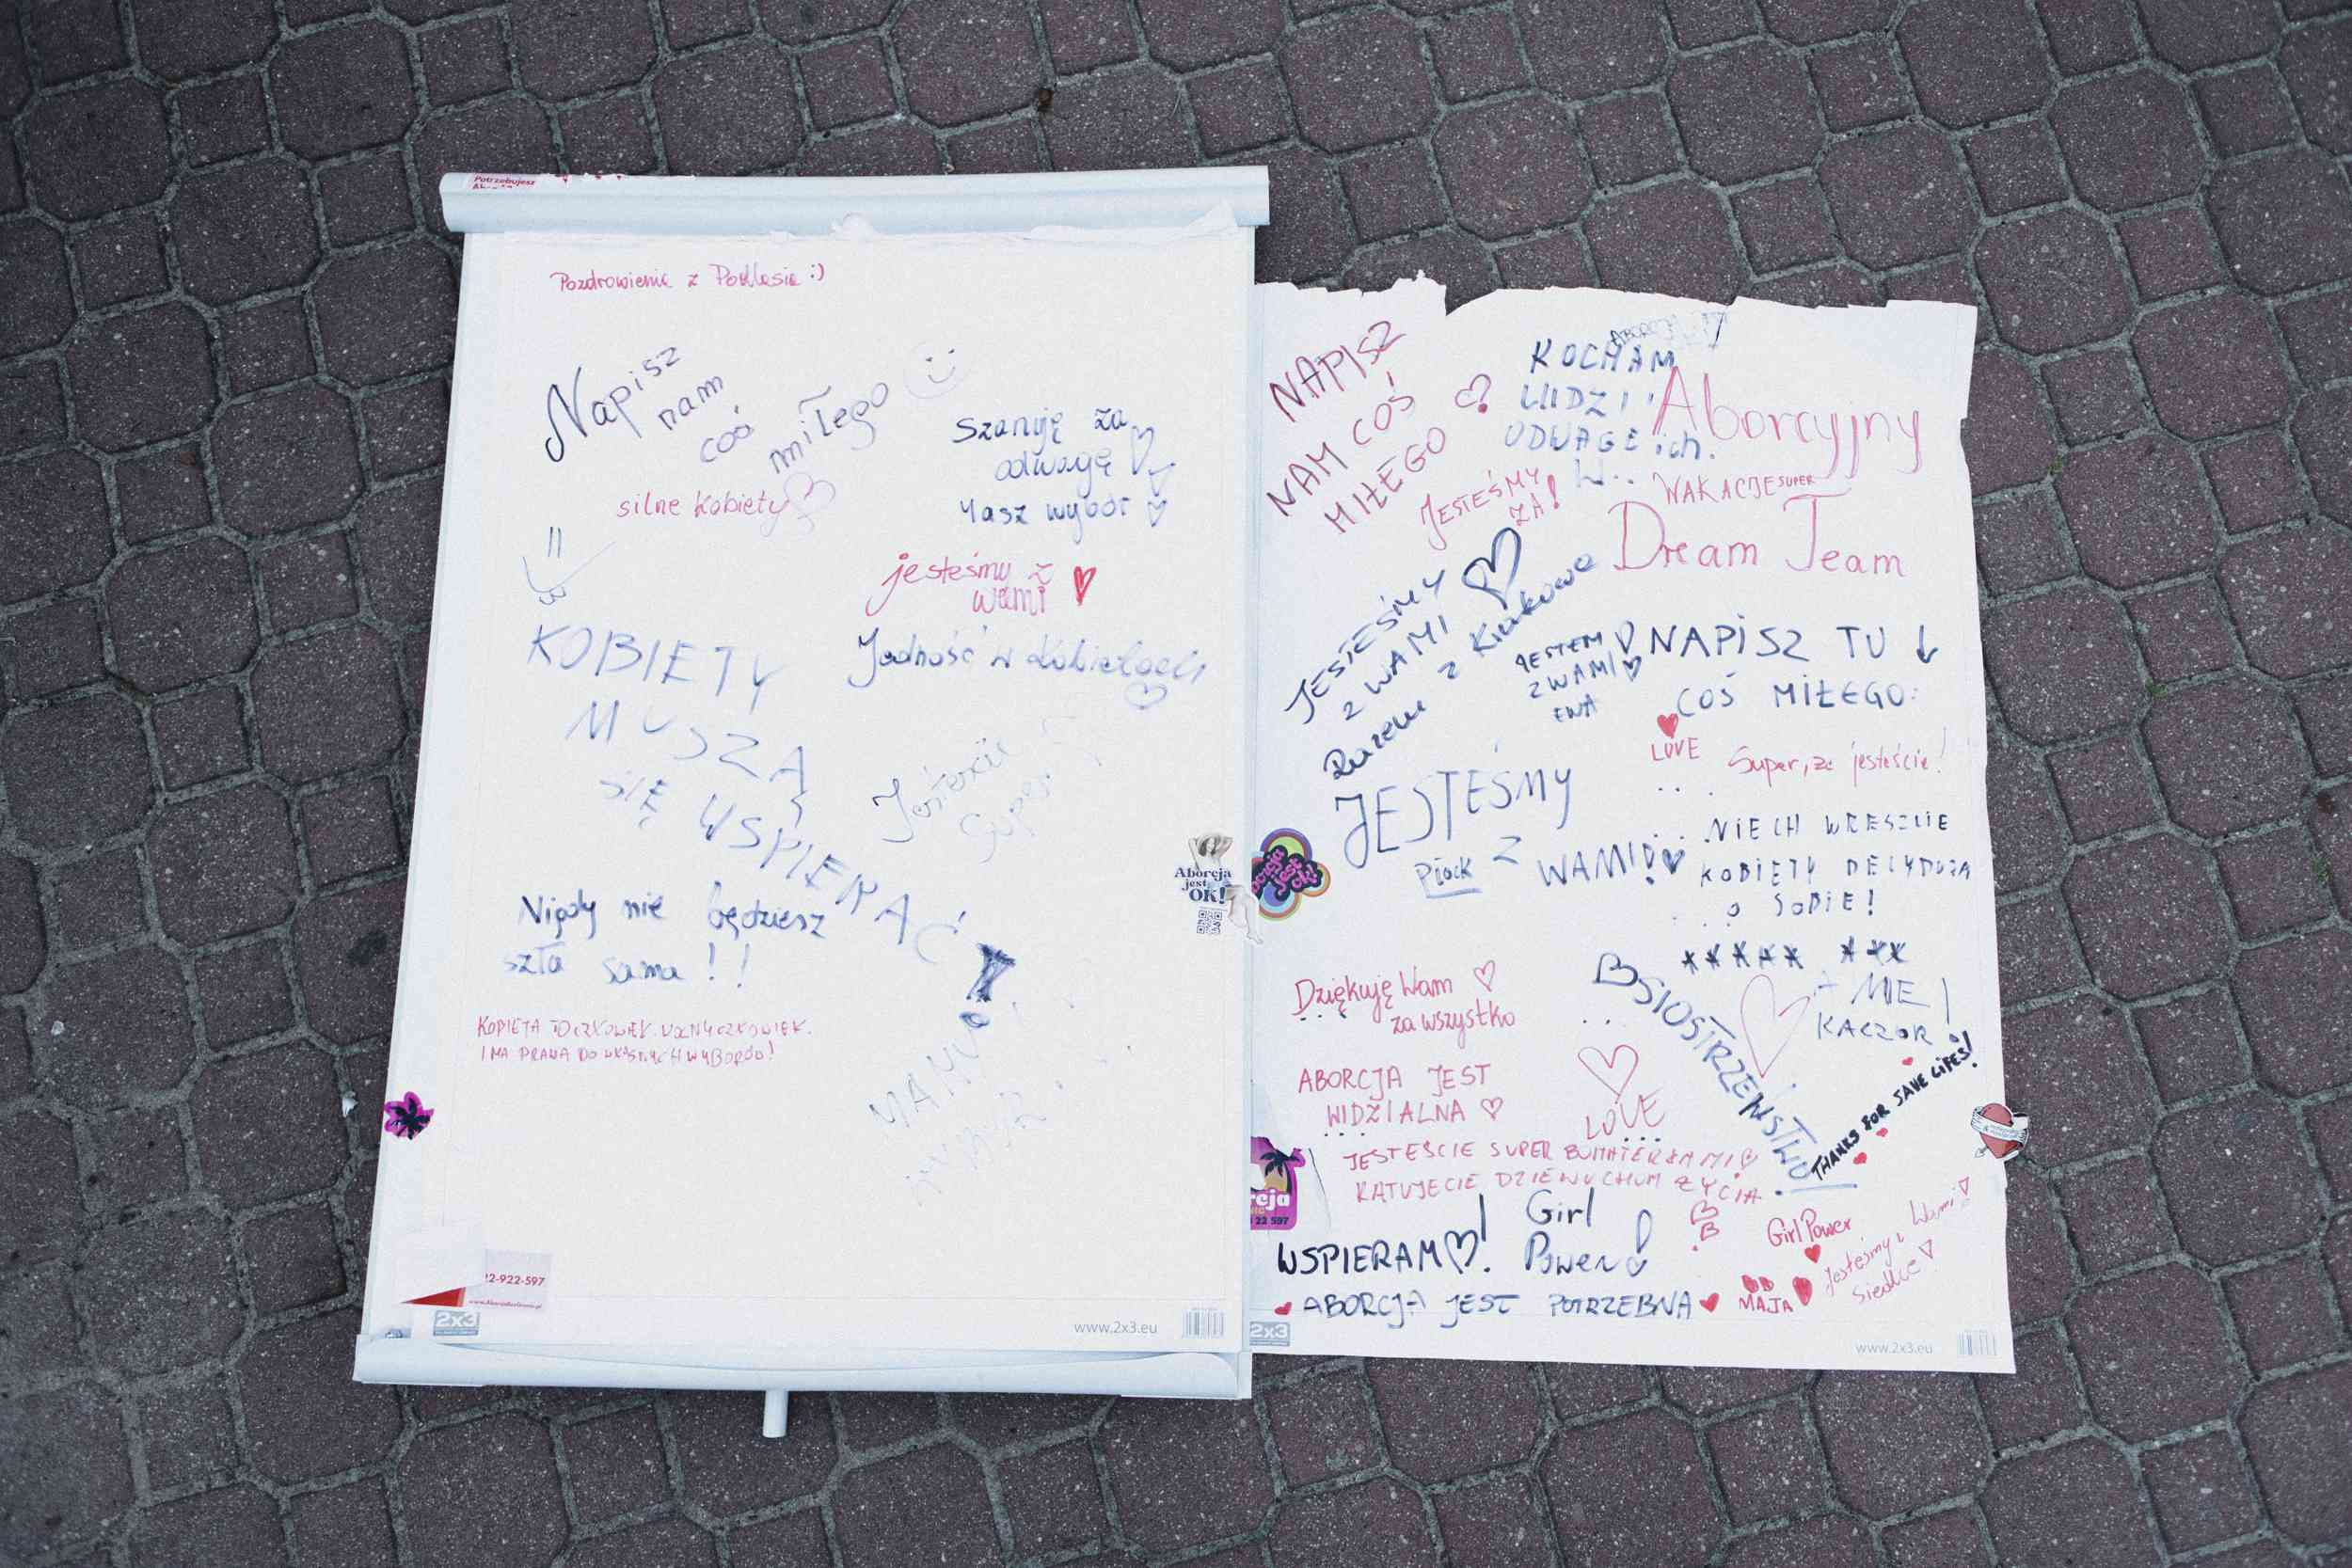 Potrzebujesz
Pozdrowienia z Podlasia :)
Napisz
nam
coś
miłego
silne kobiety
Szanuję za
odwagę
Wasz wybór
jesteśmy z
wami
Jedność w kobietach
KOBIETY
MUSZĄ
SIĘ WSPIERAĆ!
Jesteście
super
Nigdy nie będziesz
szła sama!!
KOBIETA TO CZŁOWIEK. WOLNY CZŁOWIEK.
I MA PRAWA DO WŁASNYCH WYBORÓW!
Aborcja
jest
OK!
22-922-597
2x3
www.2x3.eu
NAPISZ
NAM COŚ
MIŁEGO
KOCHAM
LUDZI i
ODWAGE ich.
JESTEŚMY
ZA!
Aborcyjny
WAKACJE SUPER
Dream Team
JESTEŚMY
Z WAMI
Razem z Krakowa
JESTEM
Z WAMI
EWA
NAPISZ TU ↓
COŚ MIŁEGO:
LOVE
Super, że jesteście!
JESTEŚMY
Z WAMI!
Płock
NIECH WRESZCIE
KOBIETY DECYDUJĄ
O SOBIE!
***** ***
A NIE
KACZOR!
BSIOSTRZEŃSTWO!
Dziękuję Wam
za wszystko
ABORCJA JEST
WIDZIALNA
LOVE
THANKS FOR SAVE LIFES!
JESTEŚCIE SUPER BOHATERKAMI
RATUJECIE DZIEWUCHOM ŻYCIA
WSPIERAM!
Girl
Power
Girl Power
Jesteśmy z Wami
Siedlce
ABORCJA JEST POTRZEBNA
OD
MAJA
aborcja
jest
ok!
rcja
22 597
2x3
www.2x3.eu